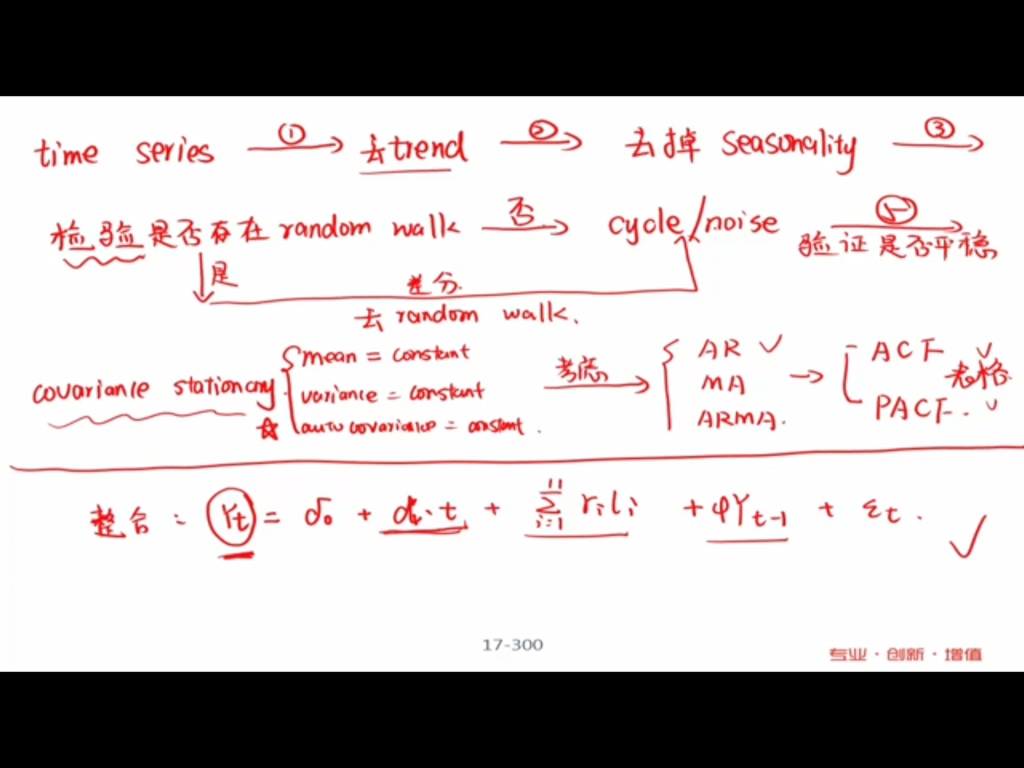 time series ① → 去trend ② → 去掉 seasonality ③ →
检验是否存在 random walk 否 → cycle/noise ⑤ → 验证是否平稳
↓是 差分
去 random walk.
covariance stationary { mean = constant
variance = constant
☆ auto covariance = constant.
考虑 → { AR ✓
MA
ARMA.
→ ACF ✓
PACF. ✓
表格
整合: Yt = δ₀ + δ₁·t + Σ(i=1, 11) rᵢlᵢ + φYt-1 + εt. ✓
17-300
专业·创新·增值